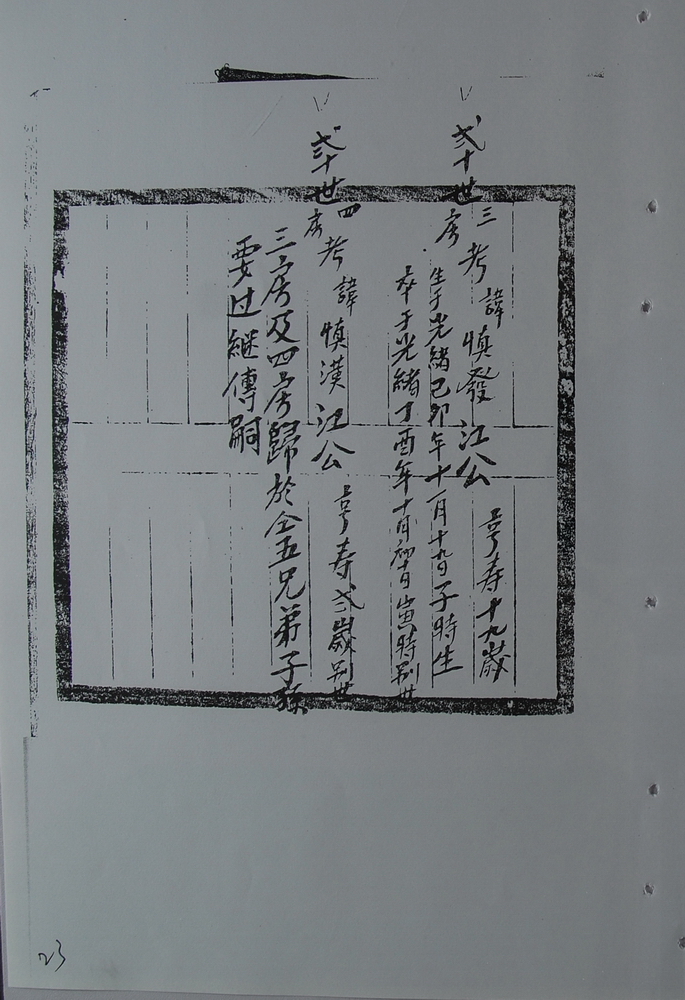 弍十世三房考諱慎發江公 享寿十九歲
生于光緒己卯年十一月十九日子時生
卒于光緒丁酉年十月初十日寅時别世
弍十世四房考諱慎漢江公 享寿弍歲别世
三房及四房歸於仝五兄弟子孫
要过継傳嗣
23